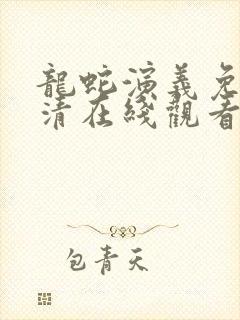 龍蛇演義免
清在綫觀看
包青天